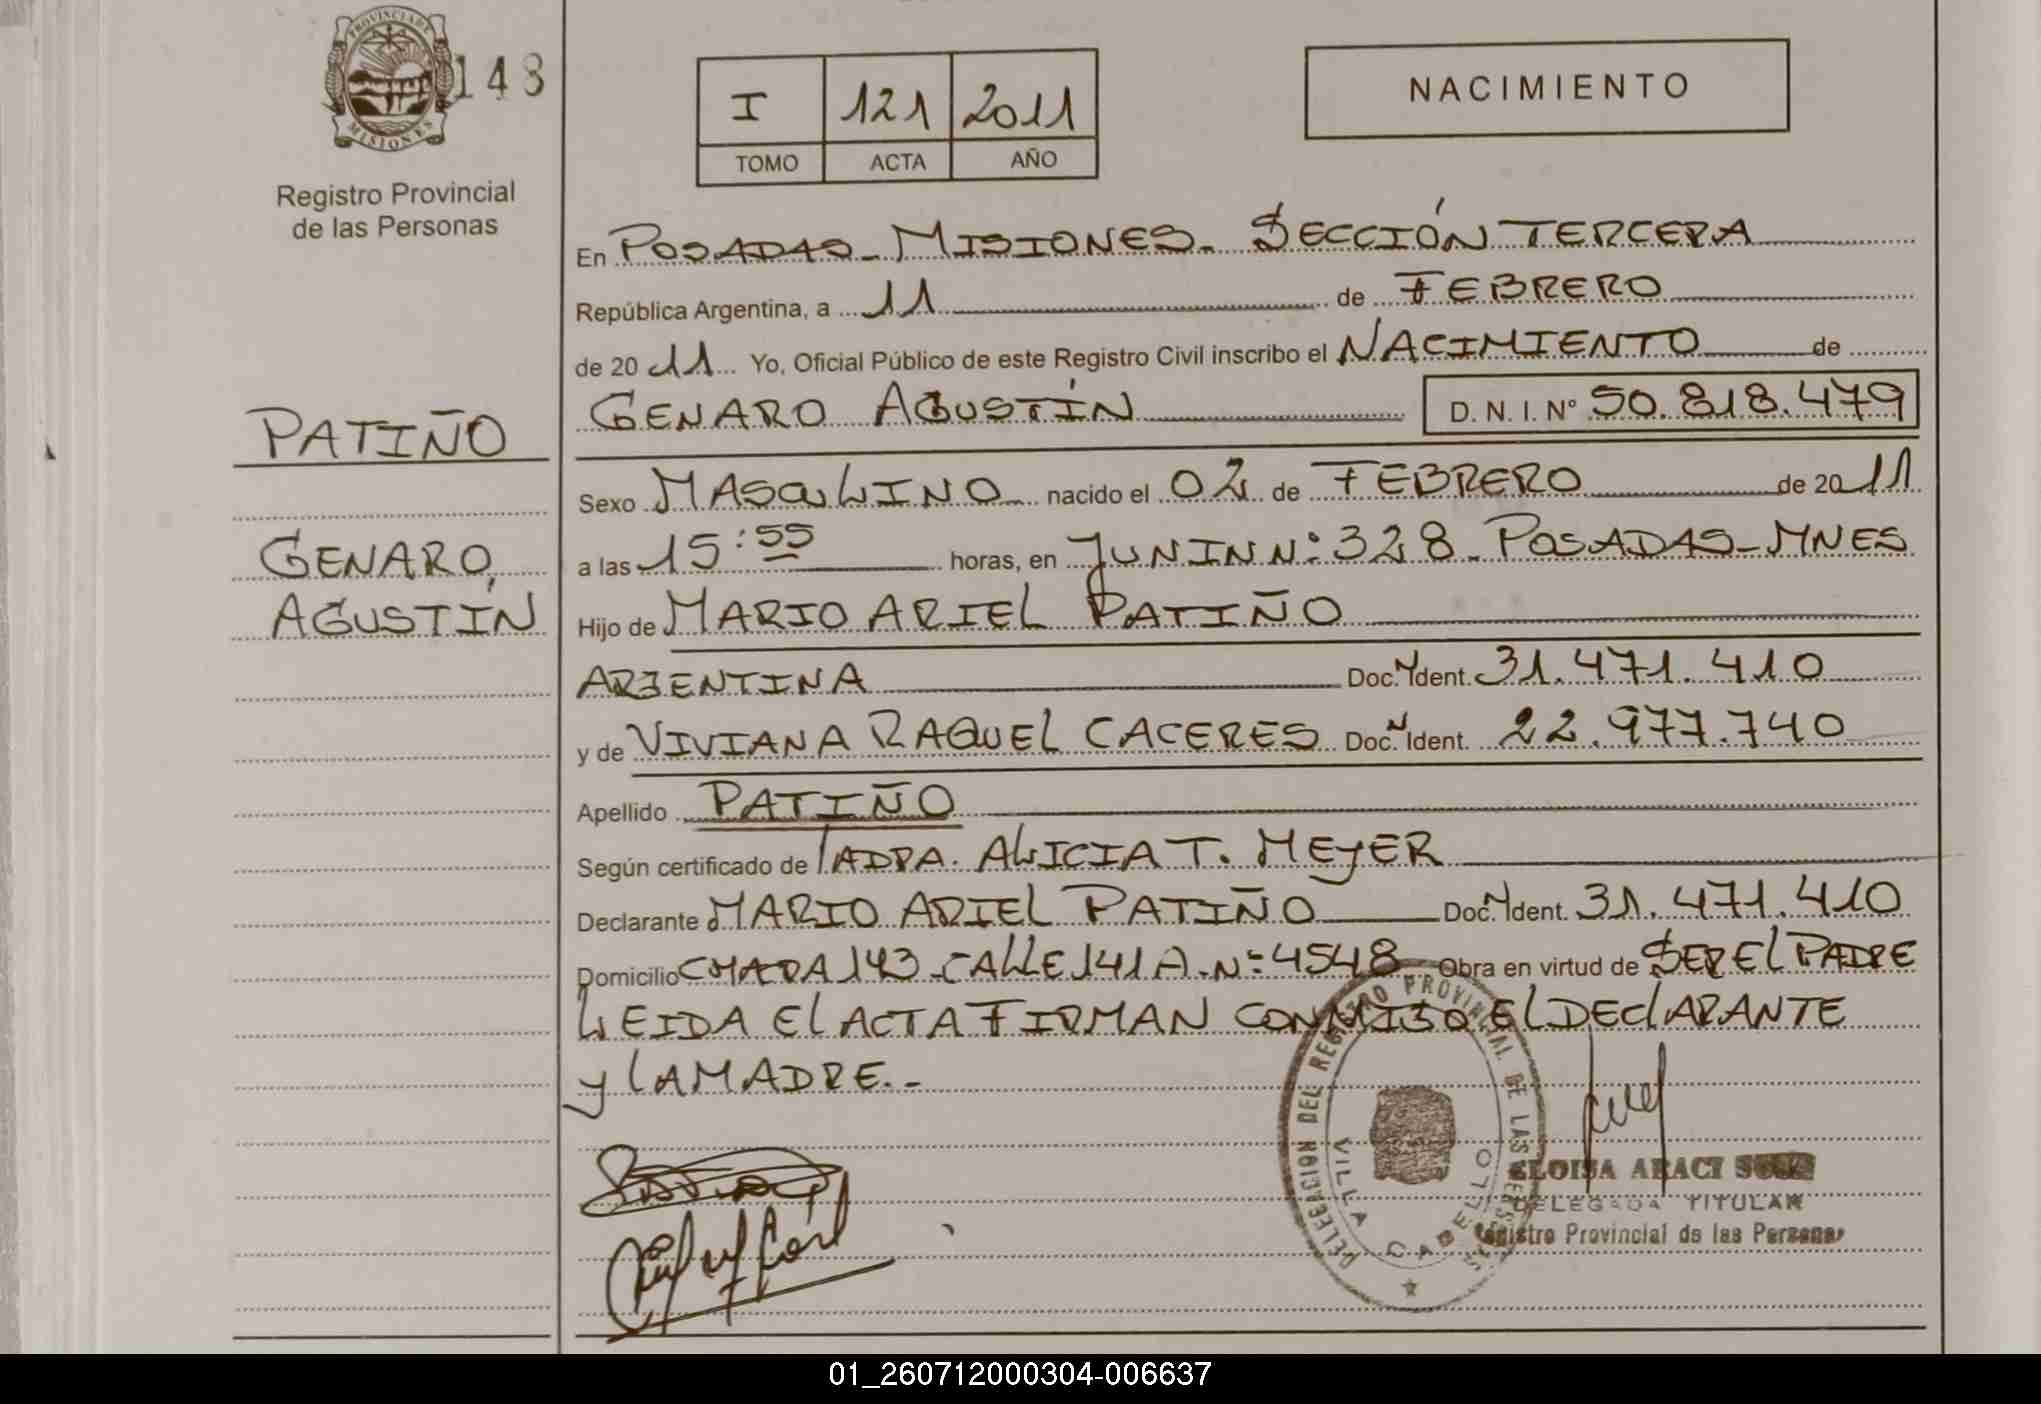 PROVINCIA DE
MISIONES
148
Registro Provincial
de las Personas
I 121 2011
TOMO ACTA AÑO
NACIMIENTO
En POSADAS - MISIONES - SECCIÓN TERCERA
República Argentina, a 11 de FEBRERO
de 2011 Yo, Oficial Público de este Registro Civil inscribo el NACIMIENTO de
GENARO AGUSTÍN D. N. I. Nº 50.818.479
PATIÑO
GENARO,
AGUSTÍN
Sexo MASCULINO nacido el 02 de FEBRERO de 2011
a las 15:55 horas, en JUNIN Nº: 328 - POSADAS - MNES
Hijo de MARIO ARIEL PATIÑO
ARGENTINA Doc. Ident. 31.471.410
y de VIVIANA RAQUEL CACERES Doc. Ident. 22.977.740
Apellido PATIÑO
Según certificado de LA DRA. ALICIA T. MEYER
Declarante MARIO ARIEL PATIÑO Doc. Ident. 31.471.410
Domicilio CHACRA 143 - CALLE 141 A - Nº 4548 Obra en virtud de SER EL PADRE
LEIDA EL ACTA FIRMAN CONMIGO EL DECLARANTE
Y LA MADRE.-
DELEGACION DEL REGISTRO PROVINCIAL DE LAS PERSONAS
VILLA CABELLO
ELOISA ARACI
DELEGADA TITULAR
Registro Provincial de las Personas
01_260712000304-006637